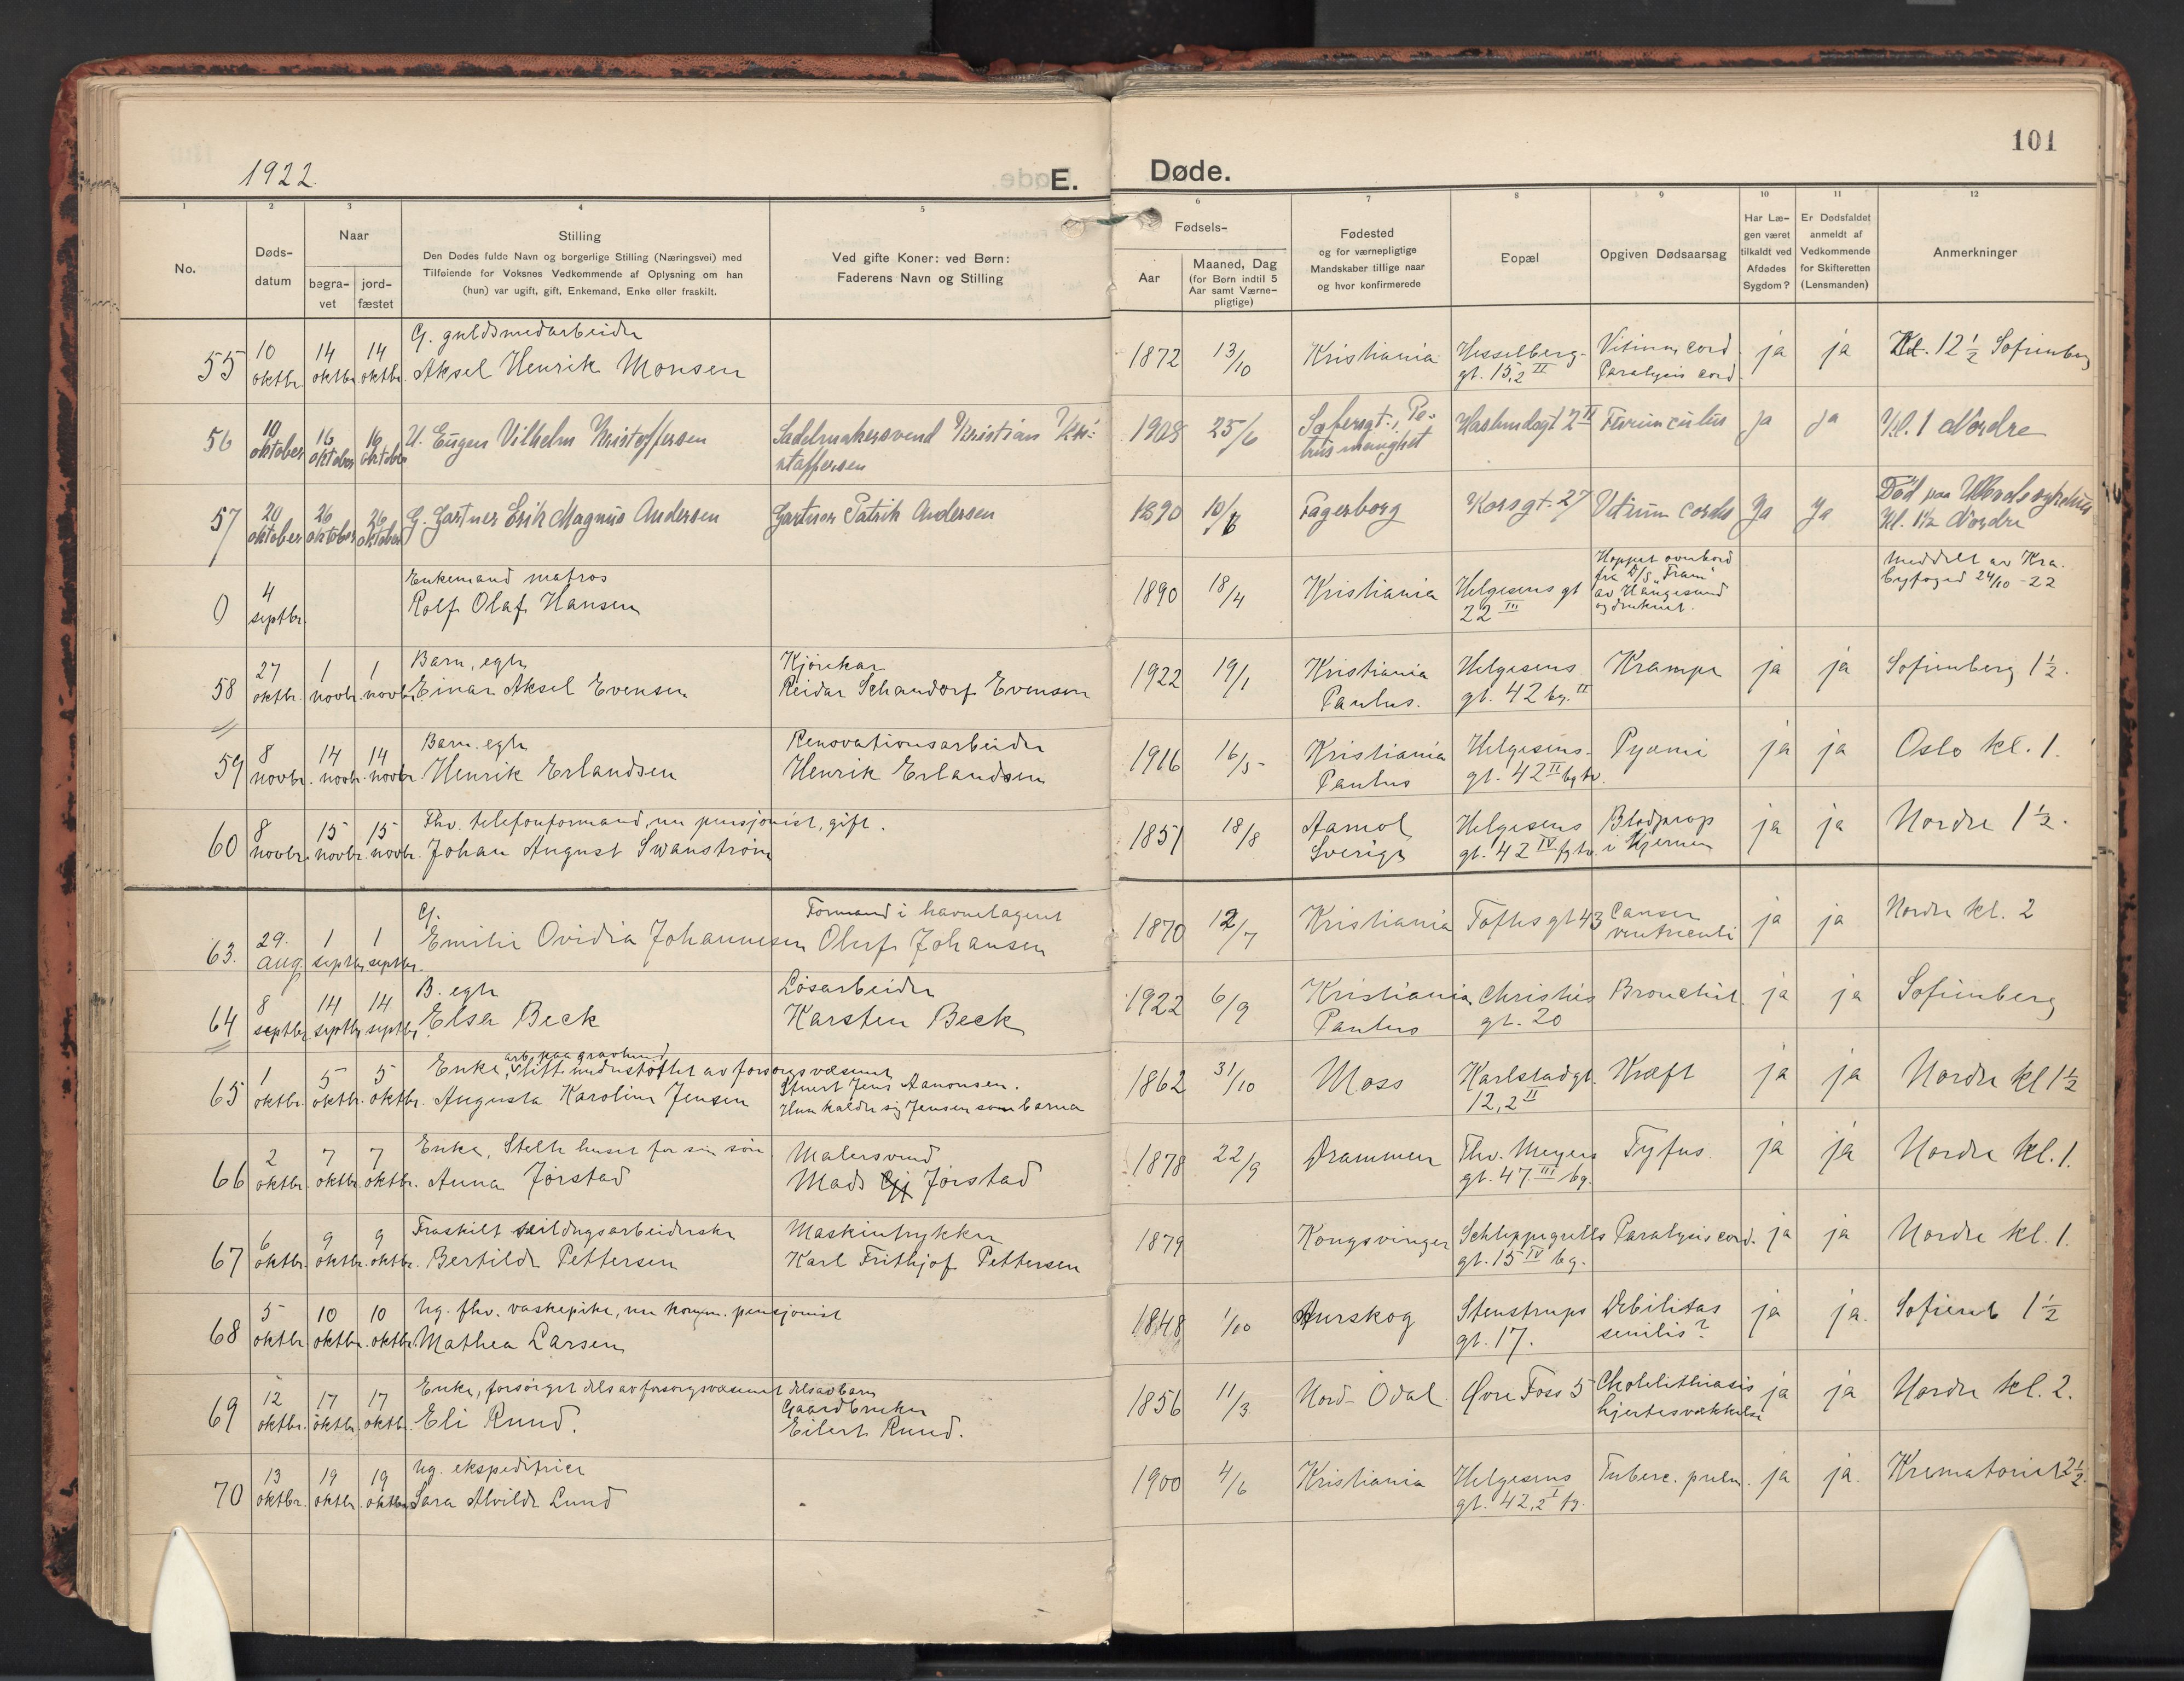 101
1922
E.
Døde.
1 2 3 4 5 6 7 8 9 10 11 12
No.
Døds-
datum
Naar
begra-
vet
jord-
fæstet
Stilling
Den Dødes fulde Navn og borgerlige Stilling (Næringsvei) med
Tilføiende for Voksnes Vedkommende af Oplysning om han
(hun) var ugift, gift, Enkemand, Enke eller fraskilt.
Ved gifte Koner: ved Børn:
Faderens Navn og Stilling
Fødsels-
Aar
Maaned, Dag
(for Børn indtil 5
Aar samt Værne-
pligtige)
Fødested
og for værnepligtige
Mandskaber tillige naar
og hvor konfirmerede
Bopæl
Opgiven Dødsaarsag
Har Læ-
gen været
tilkaldt ved
Afdødes
Sygdom?
Er Dødsfaldet
anmeldt af
Vedkommende
for Skifteretten
(Lensmanden)
Anmerkninger
G. guldsmedarbeider
55 10 oktbr. 14 oktbr. 14 oktbr. Aksel Henrik Monsen
1872 13/10 Kristiania Hesselberg- gt. 15,2 II Vitium cord. Paralysis cord. ja ja Kl. 12 1/2 Sofienberg
56 10 oktober 16 oktober 16 oktober U. Eugen Vilhelm Kristoffersen
Sadelmakersvend Kristian Kri-
stoffersen
1908 25/6 Haslundsgt 2 II Furunculus Ja Ja Kl. 1 Nordre
57 20 oktober 26 oktober 26 oktober G. Gartner Erik Magnus Andersen
Gartner Patrik Andersen
1890 10/6 Fagerborg Korsgt. 27 Vitium cordis Ja Ja
Død paa Ullevaal sykehus
Kl. 1 1/2 Nordre
Enkemand matros
0 4 septbr. Rolf Olaf Hansen
1890 18/4 Kristiania Helgesens gt 22 III
Hoppet overbord
fra D/S "Fram"
av Haugesund
og druknet.
Meddelt av Kra.
byfoged 24/10-22
Barn, egte
58 27 oktbr. 1 novbr. 1 novbr. Einar Aksel Evensen
Kjørekar
Reidar Schandorf Evensen
1922 19/1 Kristiania Paulus. Helgesens gt. 42 bg. II Krampe ja ja Sofienberg 1 1/2.
Barn. egte
59 8 novbr. 14 novbr. 14 novbr. Henrik Erlandsen
Renovationsarbeider
Henrik Erlandsen
1916 16/5 Kristiania Paulus Helgesens- gt. 42 II bg tv. Pyæmi ja ja Oslo kl. 1.
Fhv. telefonformand, nu pensjonist, gift.
60 8 novbr. 15 novbr. 15 novbr. Johan August Swanstrøm
1851 18/8 Aamol Sverige Helgesens gt. 42 IV fg tv. Blodprop i Hjernen ja ja Nordre 1 1/2.
G.
63. 29. aug. 1 septbr. 1 septbr. Emilie Ovidia Johannesen
Formand i havnelageret
Oluf Johansen
1870 12/7 Kristiania Toftes gt 43 Cancer ventriculi ja ja Nordre kl. 2
B. egte
64 8 septbr. 14 septbr. 14 septbr. Elsa Beck
Løsarbeider
Karsten Beck
1922 6/9 Kristiania Paulus Christies gt. 20 Bronchit. ja ja Sofienberg
arb. paa gravlund
Enke, litt understøttet av forsorgsvæsenet
65 1 oktbr. 5 oktbr. 5 oktbr. Augusta Karoline Jensen
Stuert Jens Aanonsen.
Hun kalder sig Jensen som barna
1862 31/10 Moss Karlstadgt. 12,2 II Kræft ja ja Nordre kl 1 1/2
Enke, Stelte huset for sin søn
66 2 oktbr. 7 oktbr. 7 oktbr. Anna Jørstad
Malersvend
Mads Jørstad
1878 22/9 Drammen Thv. Meyers gt. 47 III bg. Tyfus. ja ja Nordre kl. 1.
Fraskilt seildugsarbeiderske
67 6 oktbr. 9 oktbr. 9 oktbr. Bertilde Pettersen
Maskintrykker
Karl Frithjof Pettersen
1879 Kongsvinger Schleppegrells gt. 15 IV bg. Paralysis cord. ja ja Nordre kl. 1.
Ug. fhv. vaskepike, nu komm. pensjonist
68 5 oktbr 10 oktbr. 10 oktbr. Mathea Larsen
1848 1/10 Aurskog Stenstrups gt. 17. Debilitas senilis? ja ja. Sofienb 1 1/2
Enke, forsørget dels av forsorgsvæsenet dels av barn
69 12 oktbr. 17 oktbr. 17 oktbr. Eli Ruud.
Gaardbruker
Eilert Ruud.
1856 11/3 Nord-Odal Øvre Foss 5 Cholelithiasis hjertesvækkelse ja ja Nordre kl. 2.
Ug. ekspeditrice
70 13 oktbr. 19 oktbr. 19 oktbr. Sara Alvilde Lund
1900 4/6 Kristiania Helgesens gt. 42,2 I fg. Tuberc. pulm. ja ja. Krematoriet 2 1/2.